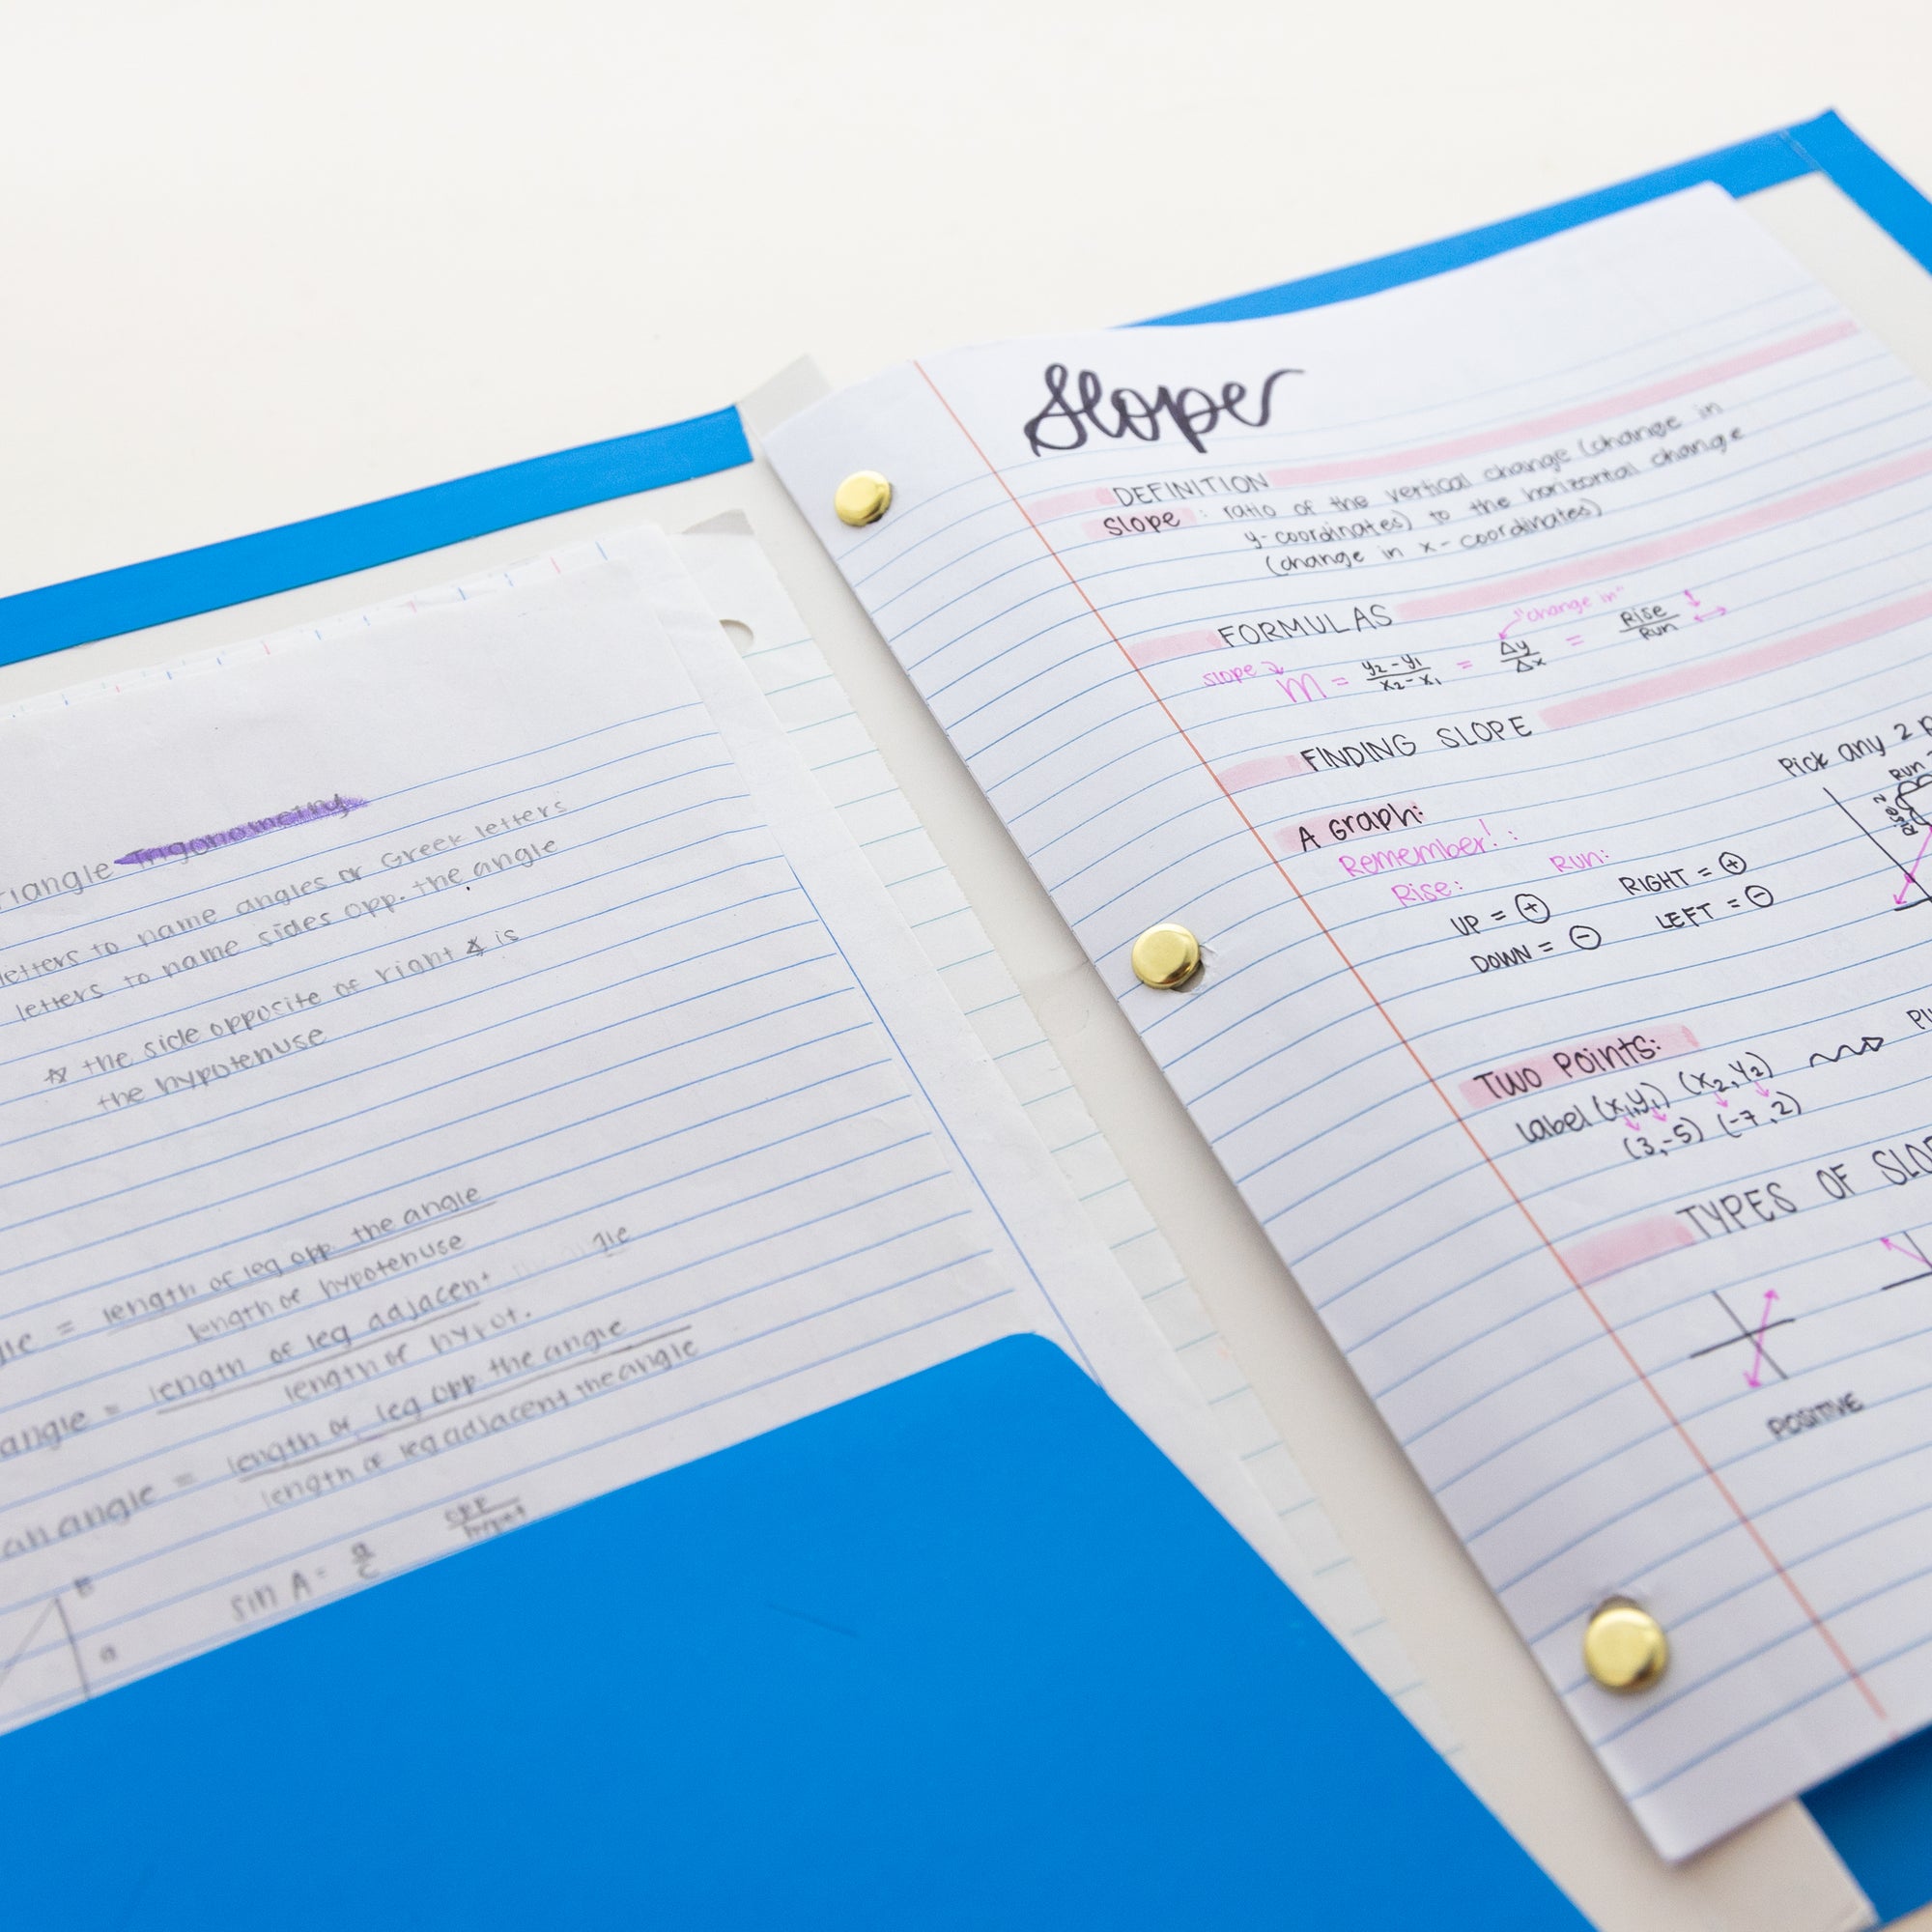 Trigonometry
letters to name angles or Greek letters
letters to name sides opp. the angle
☆ the side opposite of right ∡ is
the hypotenuse
= length of leg opp the angle
length of hypotenuse
angle = length of leg adjacent
length of hypot.
an angle = length of leg opp the angle
length of leg adjacent the angle
sin A = a/c opp/hypot
B
a
Slope
DEFINITION
Slope : ratio of the vertical change (change in
y-coordinates) to the horizontal change
(change in x-coordinates)
FORMULAS
"change in"
slope m = y₂-y₁/x₂-x₁ = Δy/Δx = Rise/Run
FINDING SLOPE
A Graph:
Pick any 2
Run
Rise
Remember! :
Rise: Run:
UP = ⊕ RIGHT = ⊕
DOWN = ⊖ LEFT = ⊖
TWO POINTS:
Label (x₁,y₁) (x₂,y₂)
(3,-5) (-7,2)
TYPES OF
POSITIVE